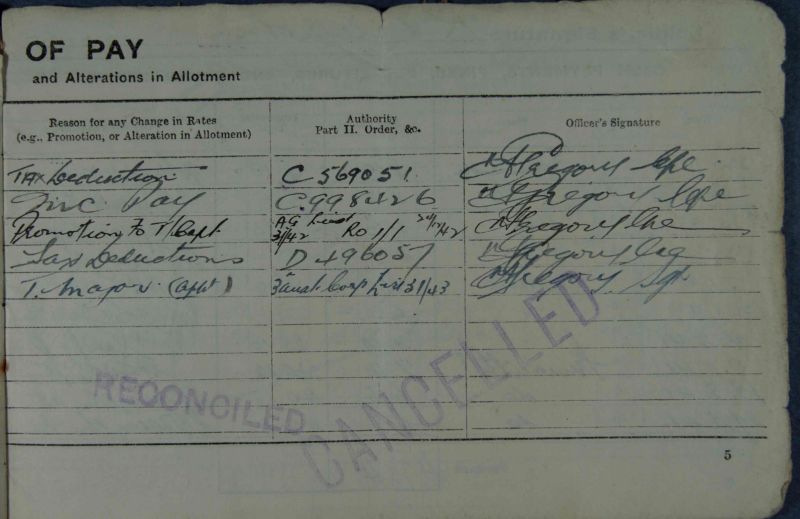 OF PAY
and Alterations in Allotment
Reason for any Change in Rates
(e.g., Promotion, or Alteration in Allotment)
Authority
Part II. Order, &c.
Officer's Signature
Tax Deduction C 569051. Gregory
Inc. Pay C.998426 Gregory
Promotion to T/Capt AG List 31/42 Gregory
Tax Deductions D496057 Gregory
T. Major (Appt) 3 Aust Corp List 31/43 Gregory Sgt
RECONCILED
CANCELLED
5